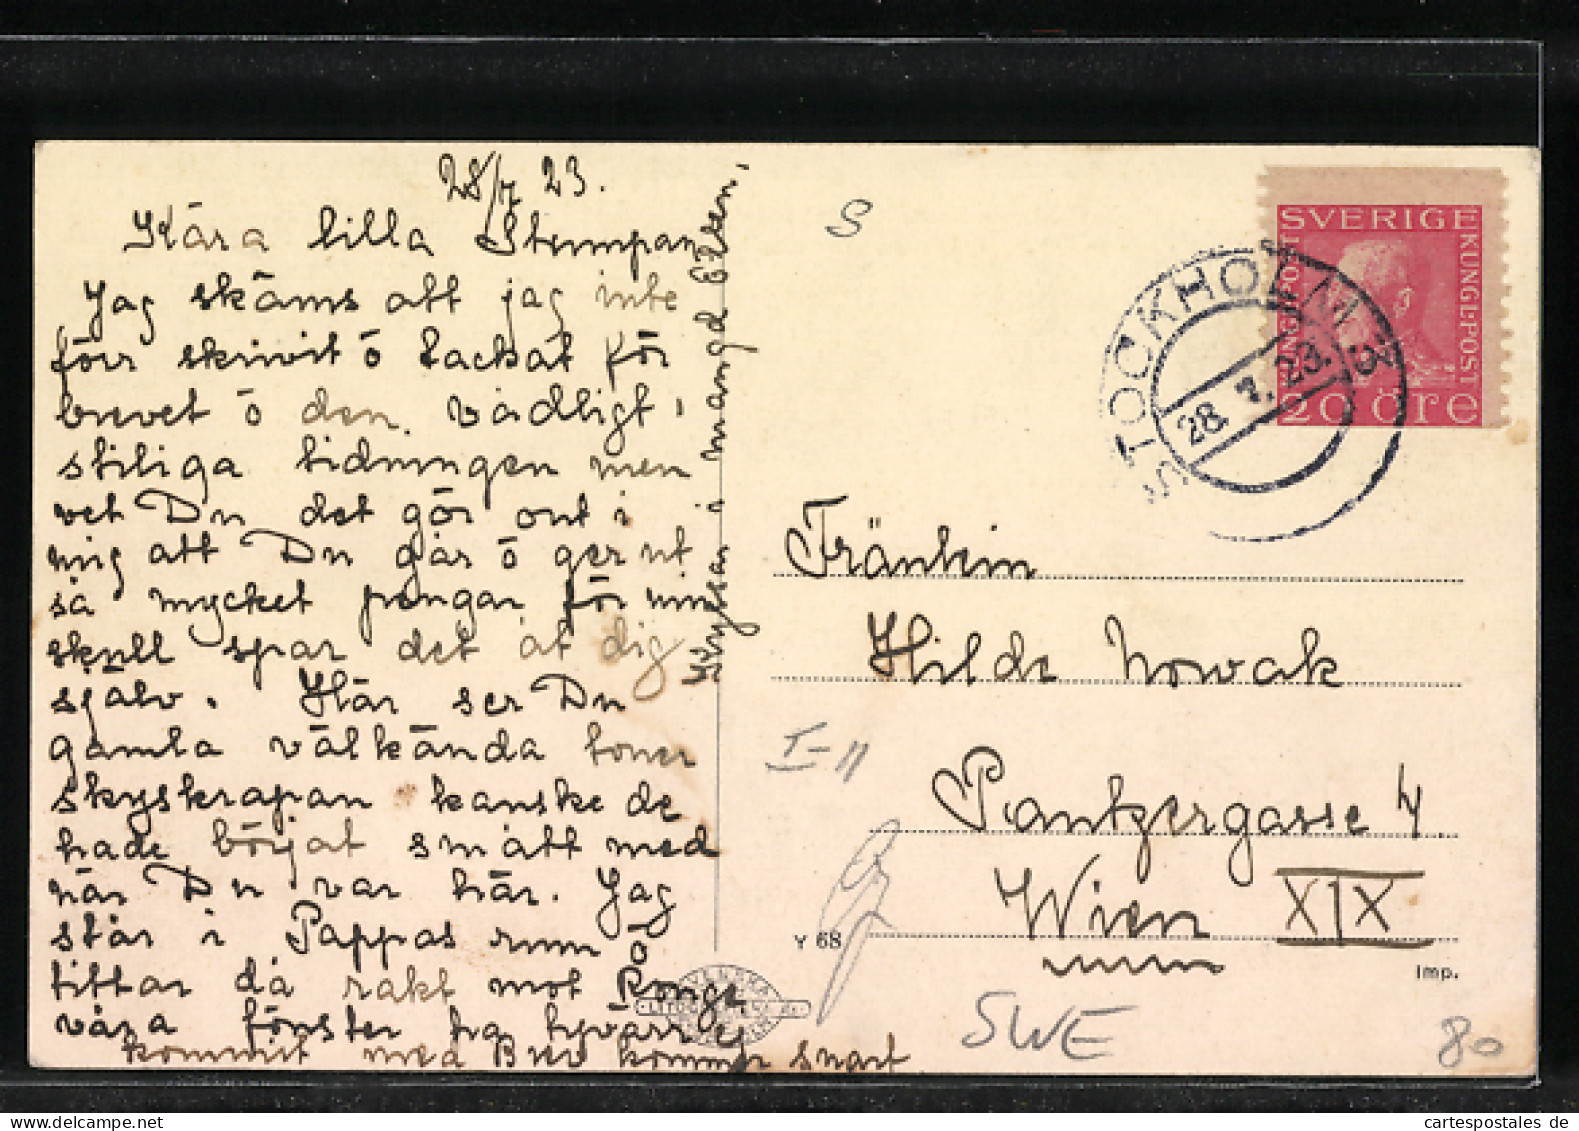 28/7 23.
Kära lilla Stumpan
Jag skäms att jag inte
förr skrivit ö tackat för
brevet ö den vådligt
stiliga tidningen men
vet Du det gör ont i
mig att Du går ö ger ut
så mycket pengar för min
skull spar det åt dig
själv. Här ser Du
gamla välkända toner
skyskrapan kanske de
hade börjat smått med
när Du var här. Jag
står i Pappas rum ö
tittar då rakt mot Konge
våra fönster ha tyvärr ej
kommit med Brev kommer snart
Kyssar i mängd Ellen.
S
SVERIGE
KUNGL:POST
KUNGL:POST
20 ÖRE
STOCKHOLM 3
28. 7. 23.
Fräulein
Hilde Nowak
I-II
Pantzergasse 4
Wien XIX
Y 68
Imp.
SVENSKA
SWE
80
cartespostales de